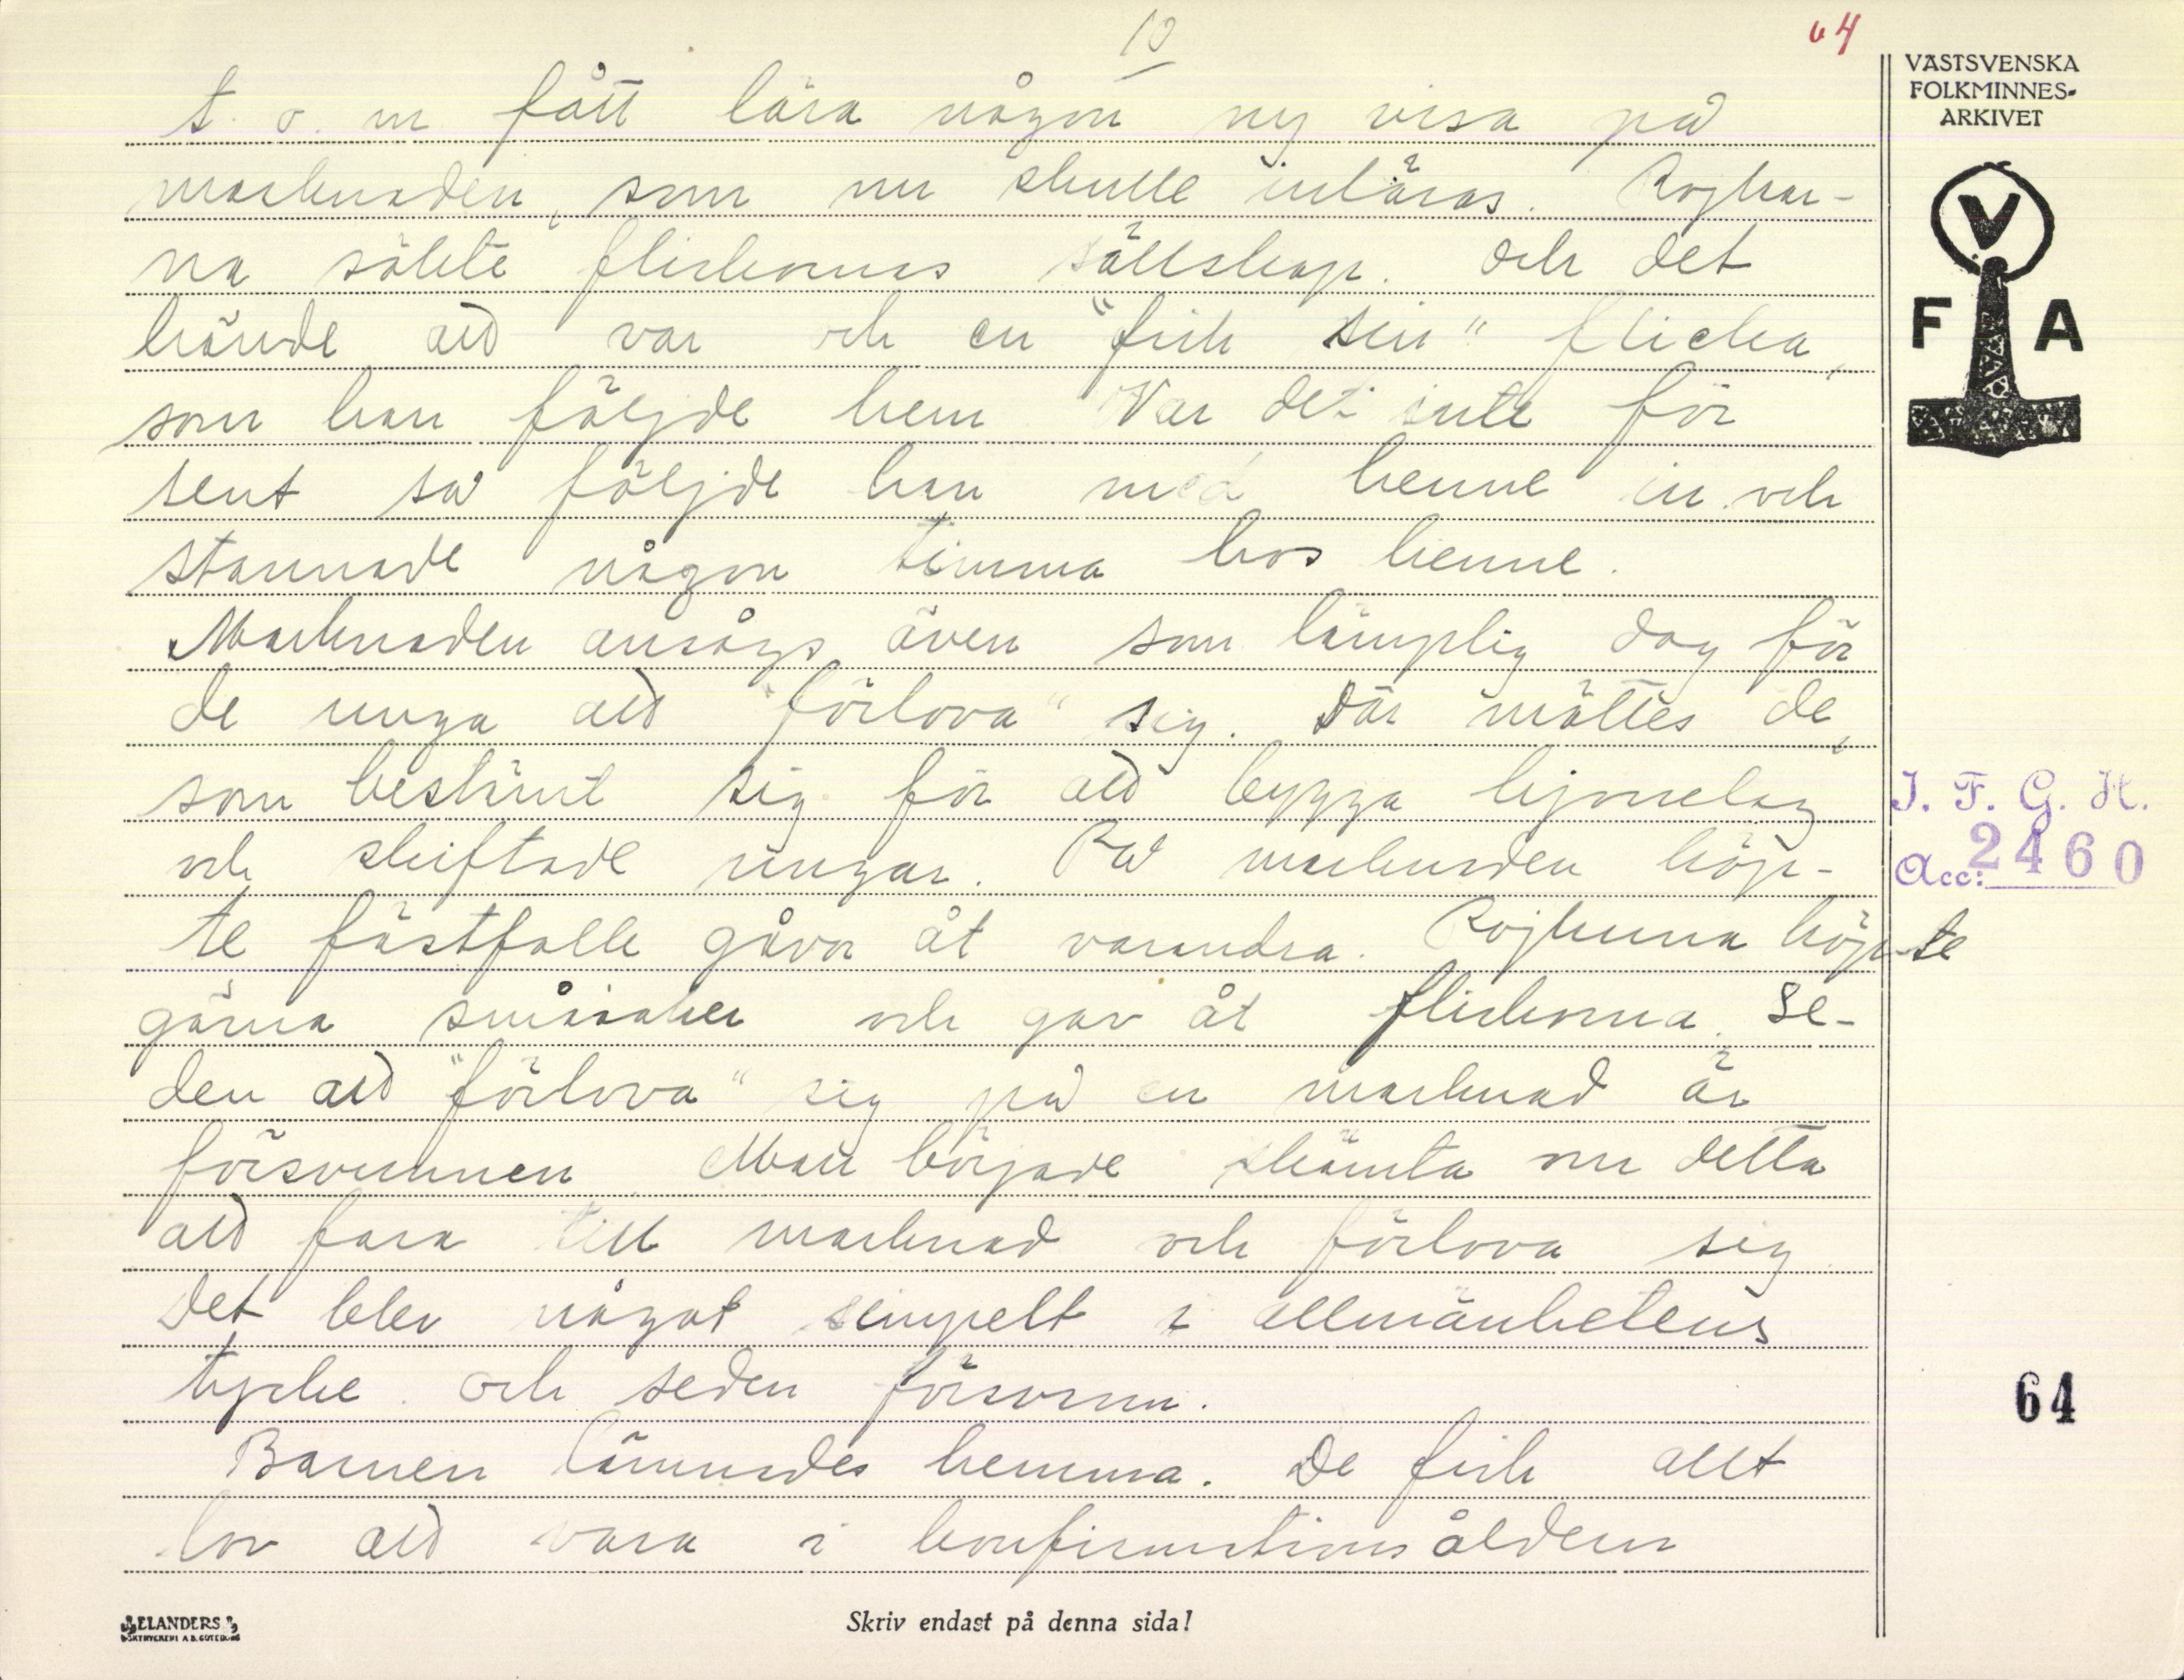 10
64
t. o. m. fått lära någon ny visa på
marknaden, som nu skulle inläras. Pojkar-
na sökte flickornas sällskap. Och det
hände att var och en "fick sin" flicka,
som han följde hem. Var det inte för
sent så följde han med henne in och
stannade någon timma hos henne.
Marknaden ansågs även som lämplig dag för
de unga att "förlova" sig. Där möttes de,
som bestämt sig för att bygga hjonelag
och skiftade ringar. På marknaden köp-
te fästfolk gåvor åt varandra. Pojkarna köpte
gärna småsaker och gav åt flickorna. Se-
den att "förlova" sig på en marknad är
försvunnen. Man började skämta om detta
att fara till marknad och förlova sig.
Det blev något simpelt i allmänhetens
tycke och seden försvann.
Barnen lämnades hemma. De fick allt
lov att vara i konfirmationsåldern
VÄSTSVENSKA
FOLKMINNES-
ARKIVET
V
F A
I. F. G. H.
Acc: 2460
64
ELANDERS
Skriv endast på denna sida!